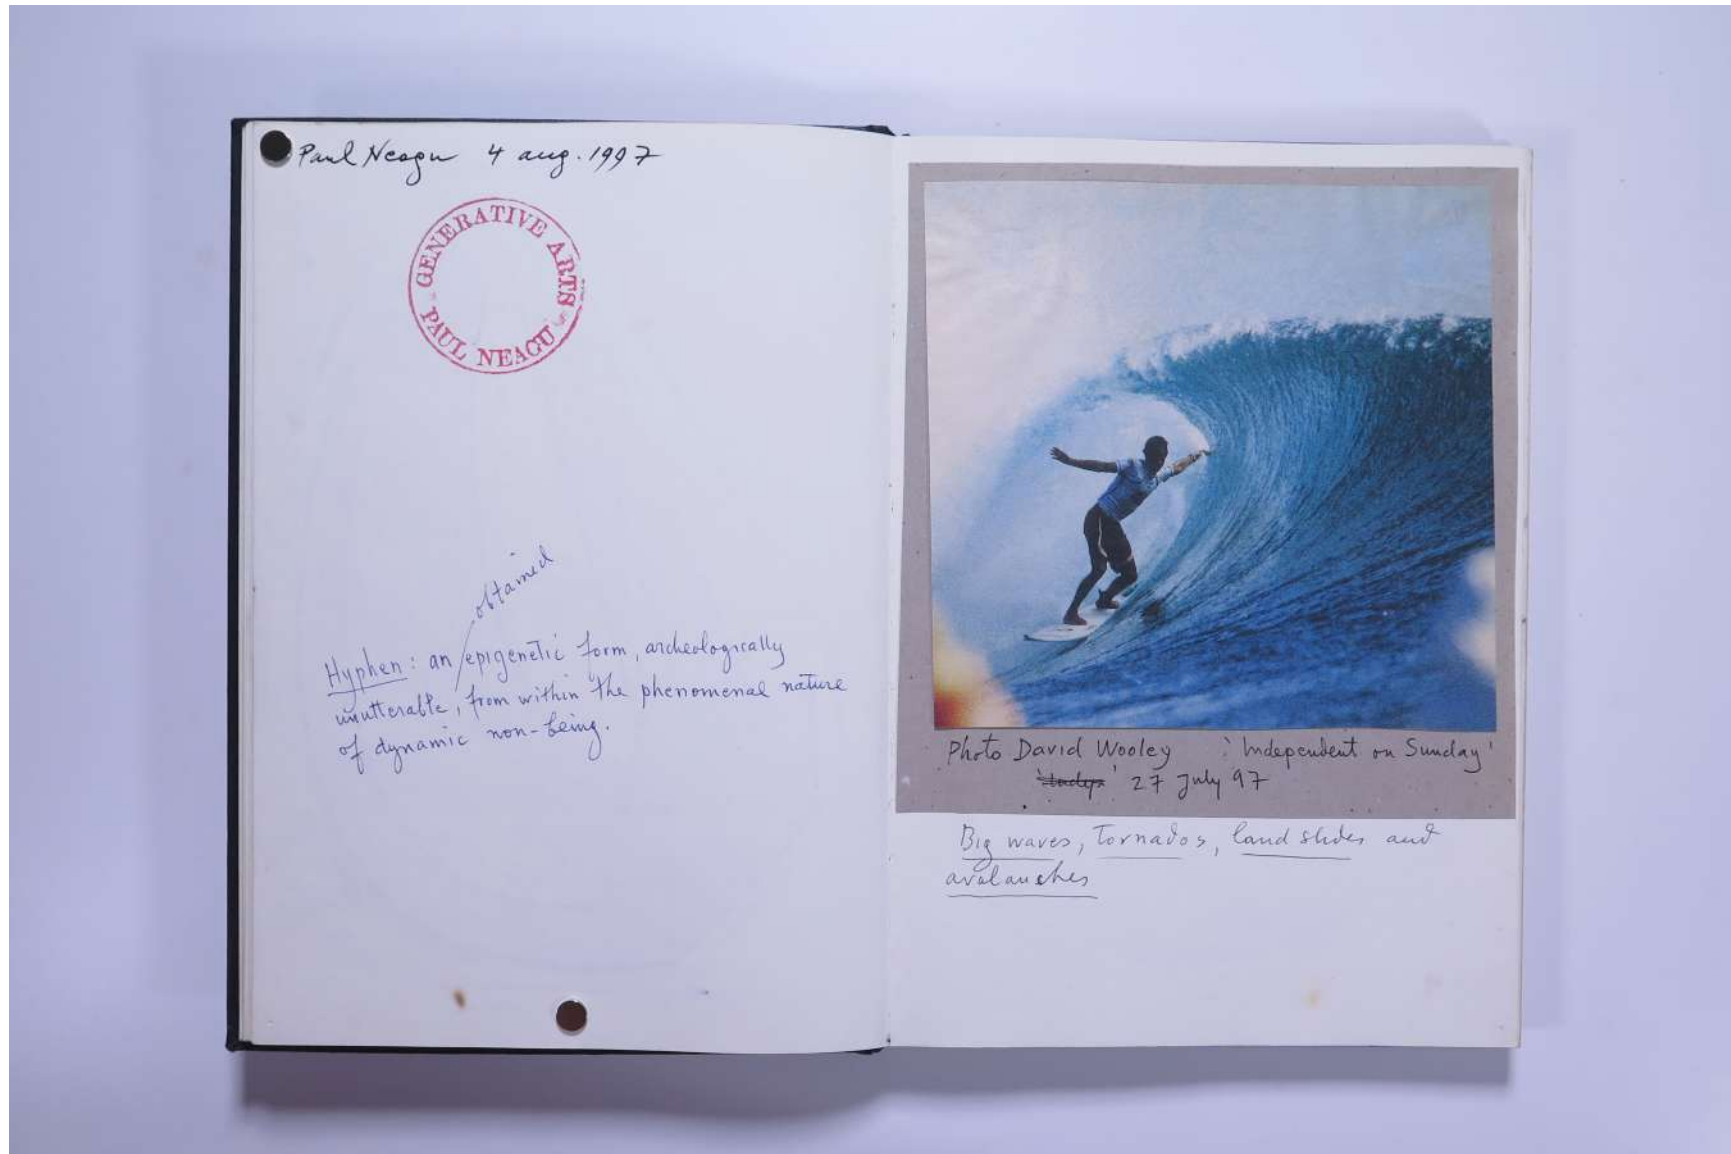 Paul Neagu 4 aug. 1997
GENERATIVE ARTS
PAUL NEAGU
obtained
Hyphen: an epigenetic form, archeologically
unutterable, from within the phenomenal nature
of dynamic non-being.
Photo David Wooley 'Independent on Sunday'
27 July 97
Big waves, Tornados, land slides and
avalanches